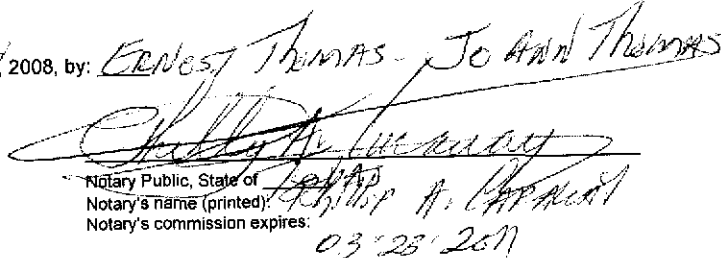 2008, by: Ernest Thomas - Jo Ann Thomas
Notary Public, State of Texas
Notary's name (printed): Phillip A.
Notary's commission expires:
03-28-2011